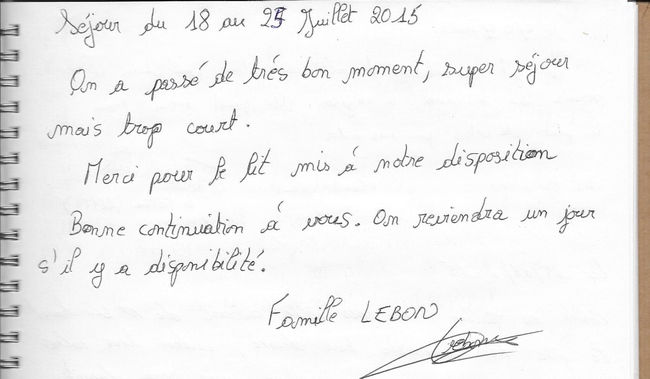 Séjour du 18 au 25 Juillet 2015
On a passé de trés bon moment, super séjour
mais trop court.
Merci pour le lit mis á notre disposition
Bonne continuation á vous. On reviendra un jour
s'il y a disponibilité.
Famille LEBON